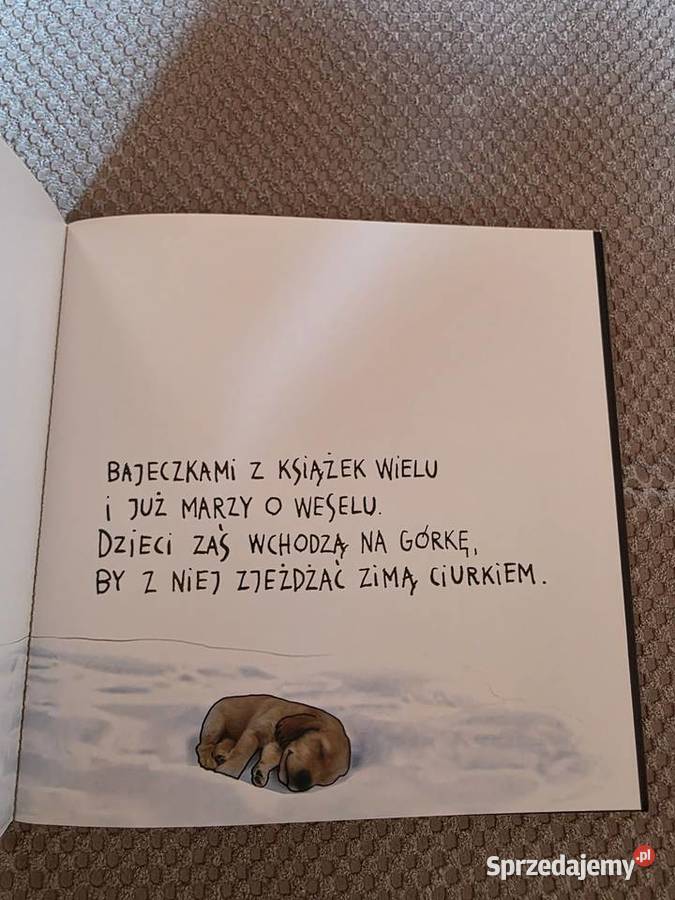 BAJECZKAMi Z KSIĄŻEK WIELU
i JUŻ MARZY O WESELU.
DZiECi ZAŚ WCHODZĄ NA GÓRKĘ,
BY Z NiEJ ZJEŻDŻAĆ ZiMĄ CiURKiEM.
Sprzedajemy.pl